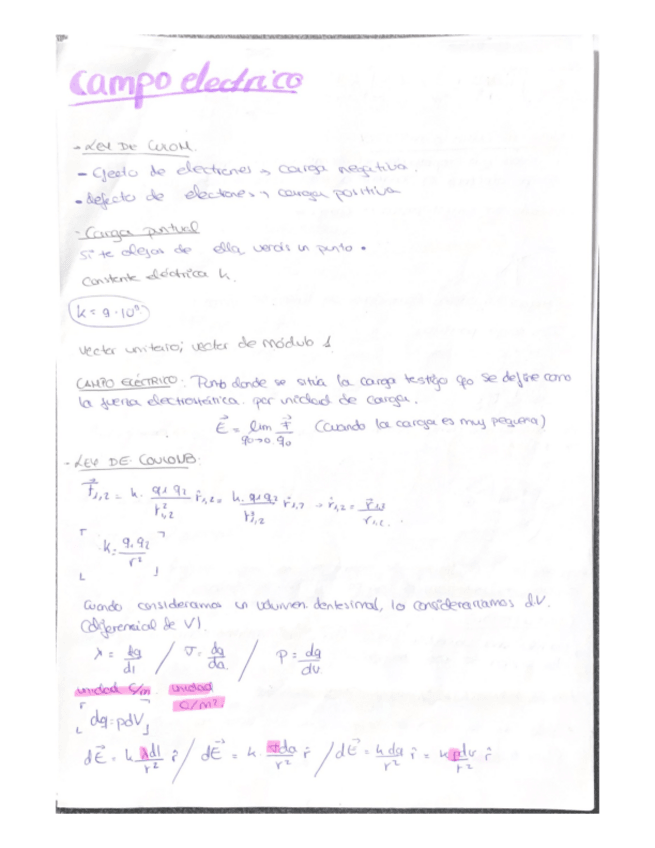 campo electrico
- LEY DE CULOM.
- Exceso de electrones → carga negativa.
• defecto de electrones → carga positiva
- Carga puntual
Si te alejas de ella, verás un punto •
Constante eléctrica k.
k = 9·10⁹
Vector unitario; vector de módulo 1
CAMPO ELÉCTRICO: Punto donde se sitúa la carga testigo qo se define como
la fuerza electrostática por unidad de carga.
E⃗ = lim F⃗/q0 (Cuando la carga es muy pequeña)
q0→0
- LEY DE COULOMB:
F⃗1,2 = k · q1 q2 / r²1,2 r̂1,2 = k · q1 q2 / r³1,2 → r̂1,2 = r⃗1,2 / r1,2
k = q1 q2 / r²
Cuando consideramos un volumen, lo consideraríamos dV.
(diferencial de V).
λ = dq/dl / σ = dq/da / ρ = dq/dv
unidad C/m unidad
C/m²
dq = ρdV
dE⃗ = k λdl/r² r̂ / dE⃗ = k · σda/r² r̂ / dE⃗ = k dq/r² r̂ = k ρdv/r² r̂